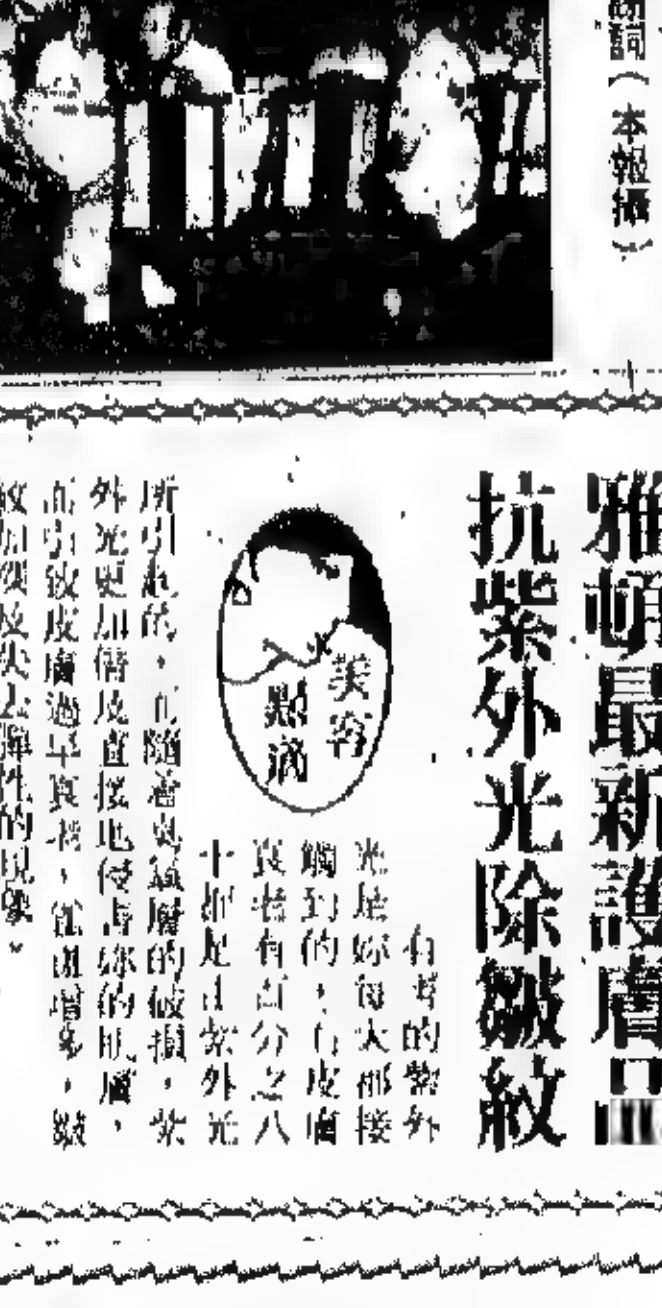 詞（本報攝）
雅頓最新護膚品
抗紫外光除皺紋
美容
點滴
有害的紫外
光是妳每天都接
觸到的，而皮膚
衰老有百分之八
十都是由紫外光
所引起的，而隨着臭氧層的破損，紫
外光更加倍及直接地侵害妳的肌膚，
而引致皮膚過早衰老，雀斑增多，皺
紋加深及失去彈性的現象。